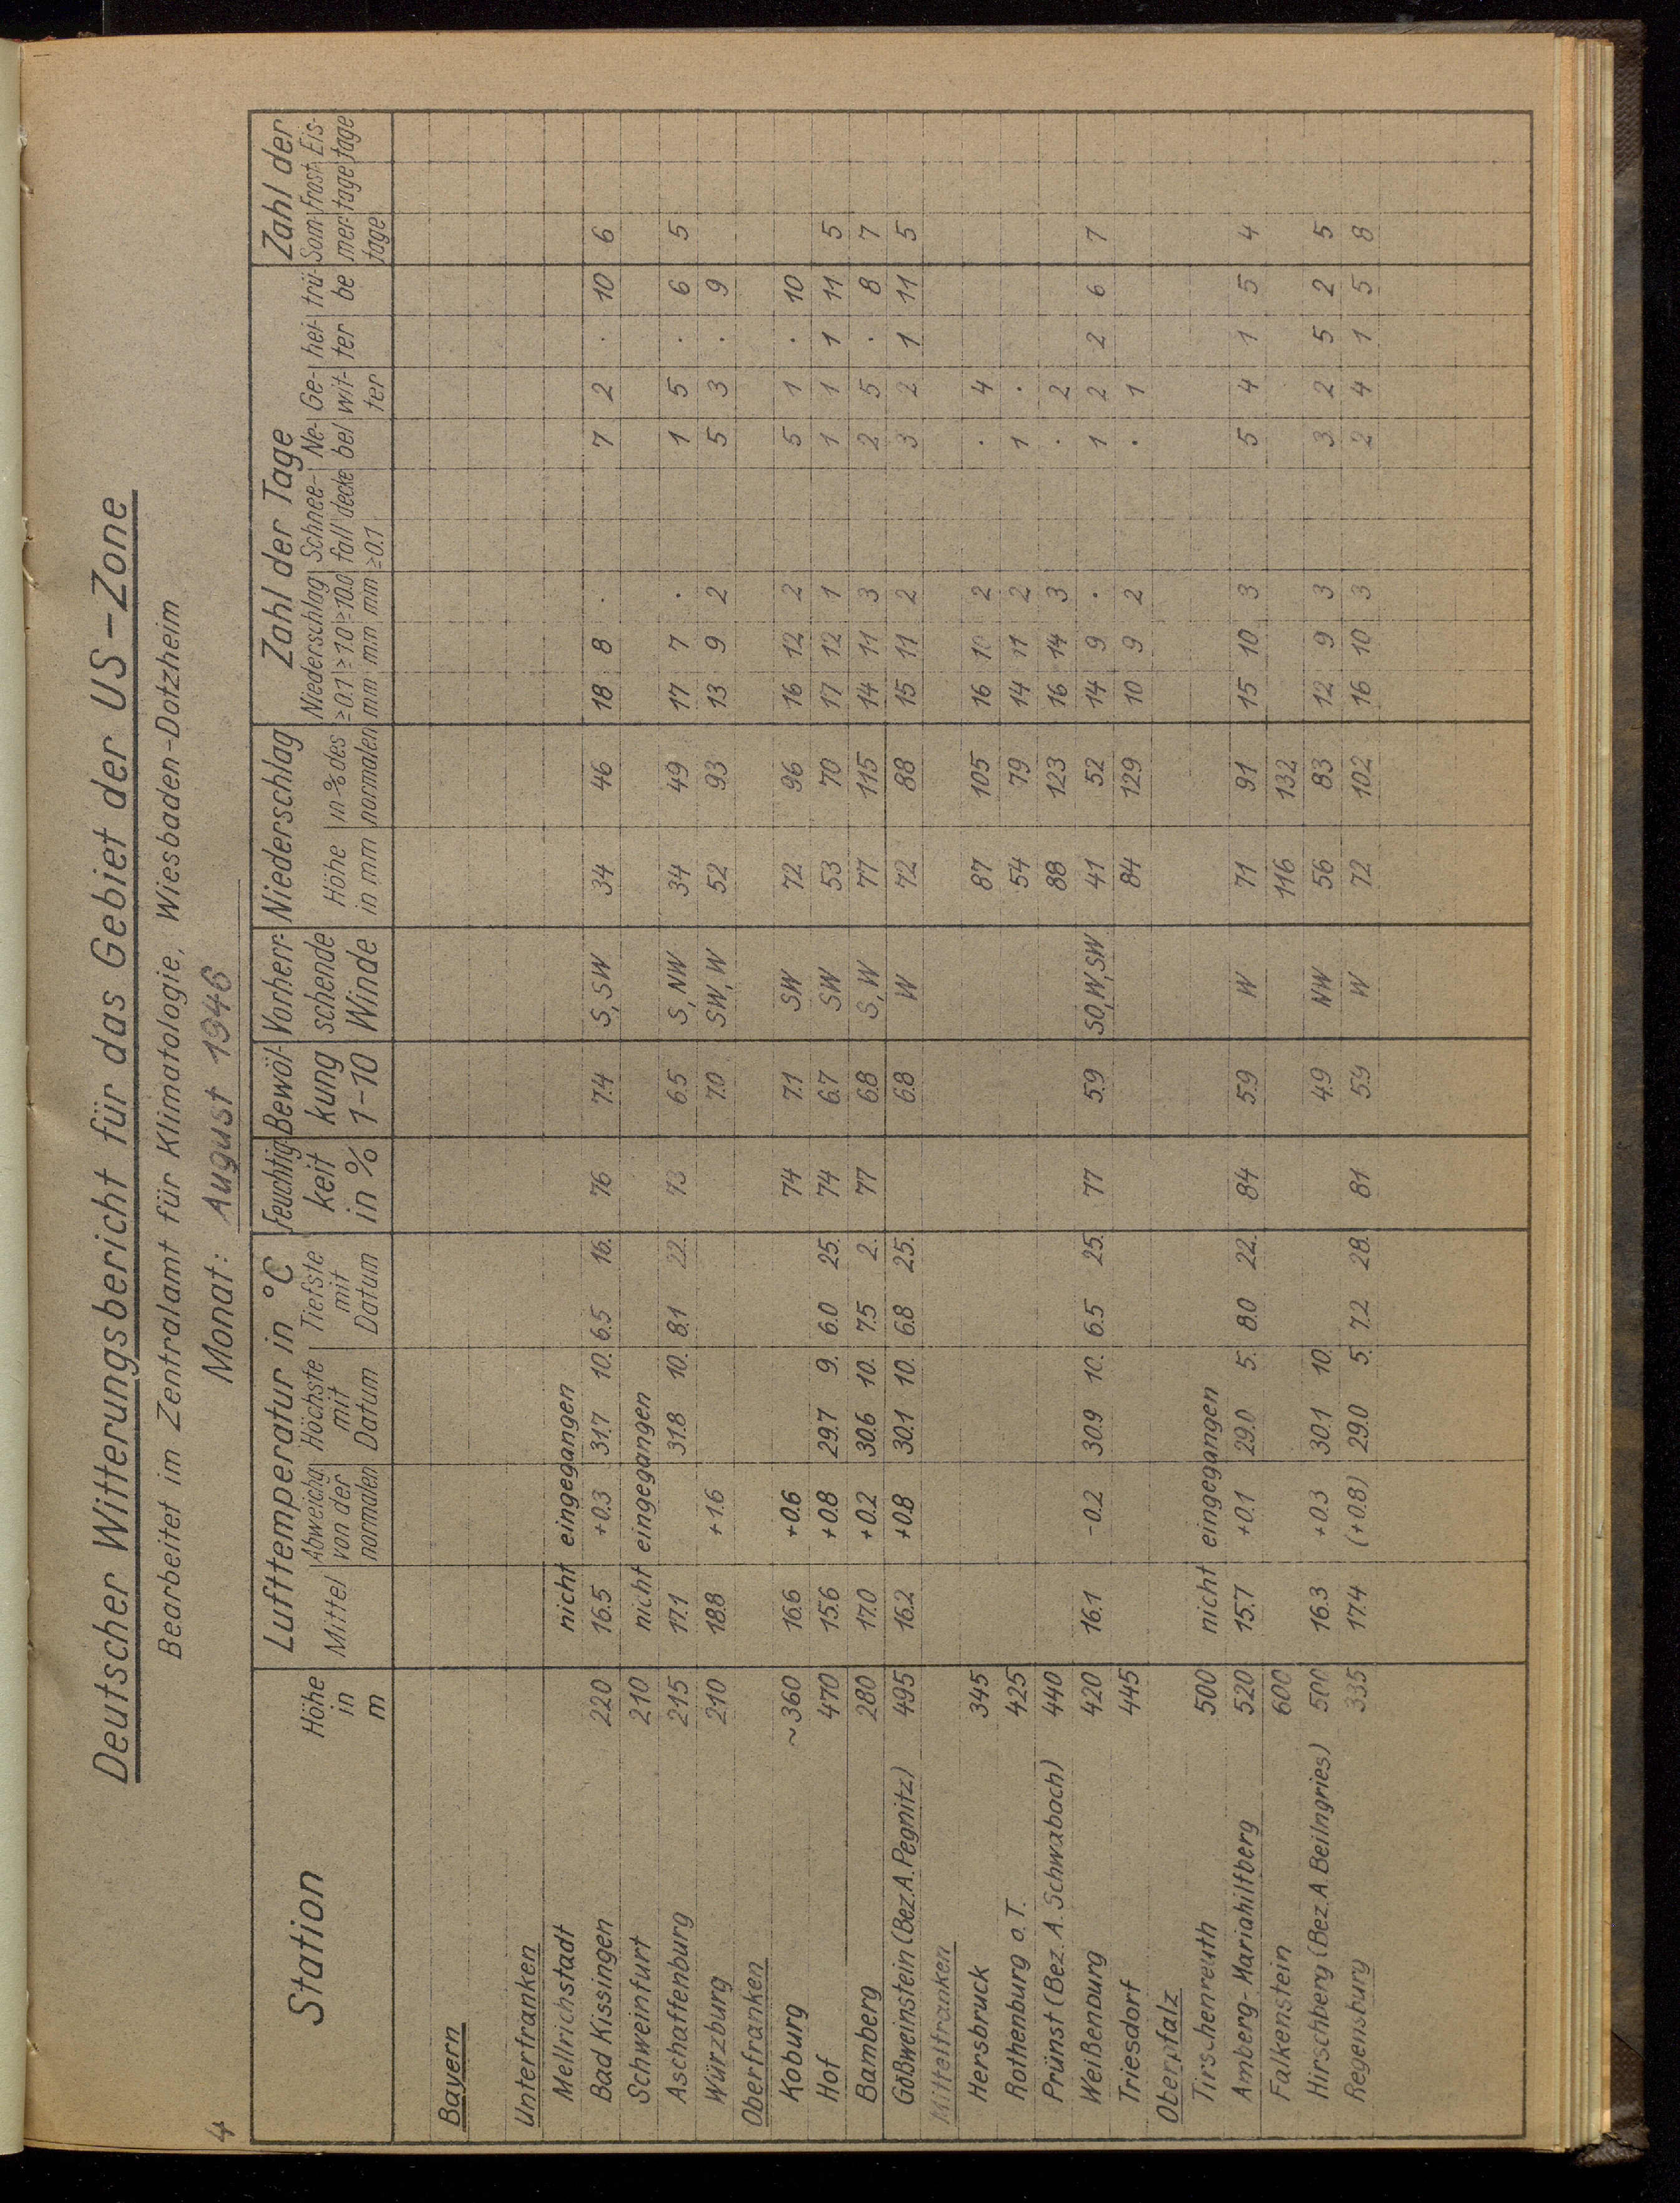 4
Deutscher Witterungsbericht für das Gebiet der US-Zone
Bearbeitet im Zentralamt für Klimatologie, Wiesbaden-Dotzheim
Monat: August 1946
Station Höhe in m Lufttemperatur in °C Feuchtig- keit in % Bewöl- kung 1-10 Vorherr- schende Winde Niederschlag Zahl der Tage Zahl der
Mittel Abweichg. von der normalen Höchste mit Datum Tiefste mit Datum Höhe in mm in % des normalen Niederschlag ≥0.1 mm ≥1.0 mm ≥10.0 mm Schnee- fall ≥0.1 decke Ne- bel Ge- wit- ter hei- ter trü- be Som- mer- tage Frost- tage Eis- tage
Bayern
Unterfranken
Mellrichstadt nicht eingegangen
Bad Kissingen 220 16.5 +0.3 31.7 10. 6.5 16. 76 7.4 S, SW 34 46 18 8 . 7 2 . 10 6
Schweinfurt 210 nicht eingegangen
Aschaffenburg 215 17.1 31.8 10. 8.1 22. 73 6.5 S, NW 34 49 17 7 . 1 5 . 6 5
Würzburg 210 18.8 +1.6 7.0 SW, W 52 93 13 9 2 5 3 . 9
Oberfranken
Koburg ~360 16.6 +0.6 74 7.1 SW 72 96 16 12 2 5 1 . 10
Hof 470 15.6 +0.8 29.7 9. 6.0 25. 74 6.7 SW 53 70 17 12 1 1 1 1 11 5
Bamberg 280 17.0 +0.2 30.6 10. 7.5 2. 77 6.8 S, W 77 115 14 11 3 2 5 . 8 7
Gößweinstein (Bez.A. Pegnitz) 495 16.2 +0.8 30.1 10. 6.8 25. 6.8 W 72 88 15 11 2 3 2 1 11 5
Mittelfranken
Hersbruck 345 87 105 16 2 . 4
Rothenburg o.T. 425 54 79 14 11 2 1 .
Prünst (Bez. A. Schwabach) 440 88 123 16 14 3 . 2
Weißenburg 420 16.1 -0.2 30.9 10. 6.5 25. 77 5.9 SO, W, SW 41 52 14 9 . 1 2 2 6 7
Triesdorf 445 84 129 10 9 2 . 1
Oberpfalz
Tirschenreuth 500 nicht eingegangen
Amberg-Mariahilfberg 520 15.7 +0.1 29.0 5. 8.0 22. 84 5.9 W 71 91 15 10 3 5 4 1 5 4
Falkenstein 600 116 132
Hirschberg (Bez. A. Beilngries) 500 16.3 +0.3 30.1 10. 4.9 NW 56 83 12 9 3 3 2 5 2 5
Regensburg 335 17.4 (+0.8) 29.0 5. 7.2 28. 81 5.9 W 72 102 16 10 3 2 4 1 5 8